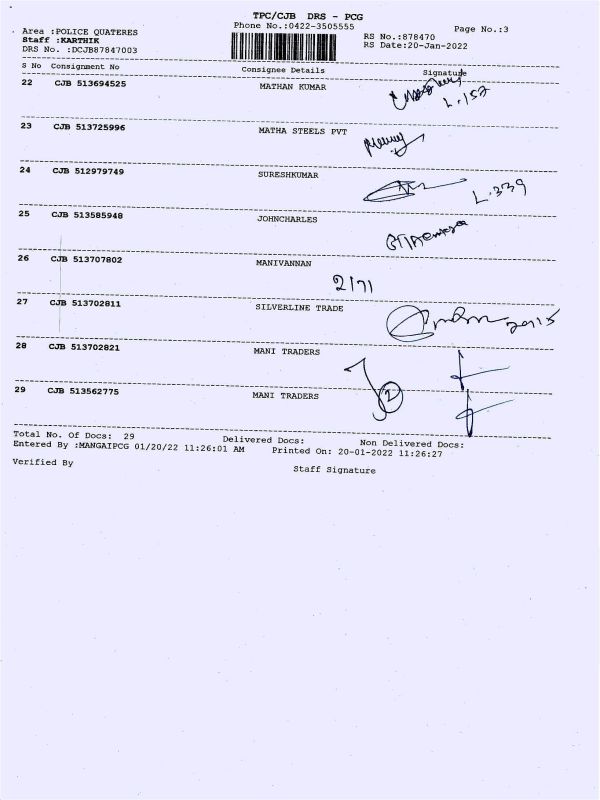 TPC/CJB DRS - PCG
Phone No.:0422-3505555
Page No.:3
Area :POLICE QUATERES
Staff :KARTHIK
DRS No. :DCJB87847003
RS No.:878470
RS Date:20-Jan-2022
S No Consignment No Consignee Details Signature
22 CJB 513694525 MATHAN KUMAR
L.152
23 CJB 513725996 MATHA STEELS PVT
24 CJB 512979749 SURESHKUMAR
L.339
25 CJB 513585948 JOHNCHARLES
26 CJB 513707802 MANIVANNAN
2171
27 CJB 513702811 SILVERLINE TRADE
28 CJB 513702821 MANI TRADERS
29 CJB 513562775 MANI TRADERS
2
Total No. Of Docs: 29 Delivered Docs: Non Delivered Docs:
Entered By :MANGAIPCG 01/20/22 11:26:01 AM Printed On: 20-01-2022 11:26:27
Verified By
Staff Signature